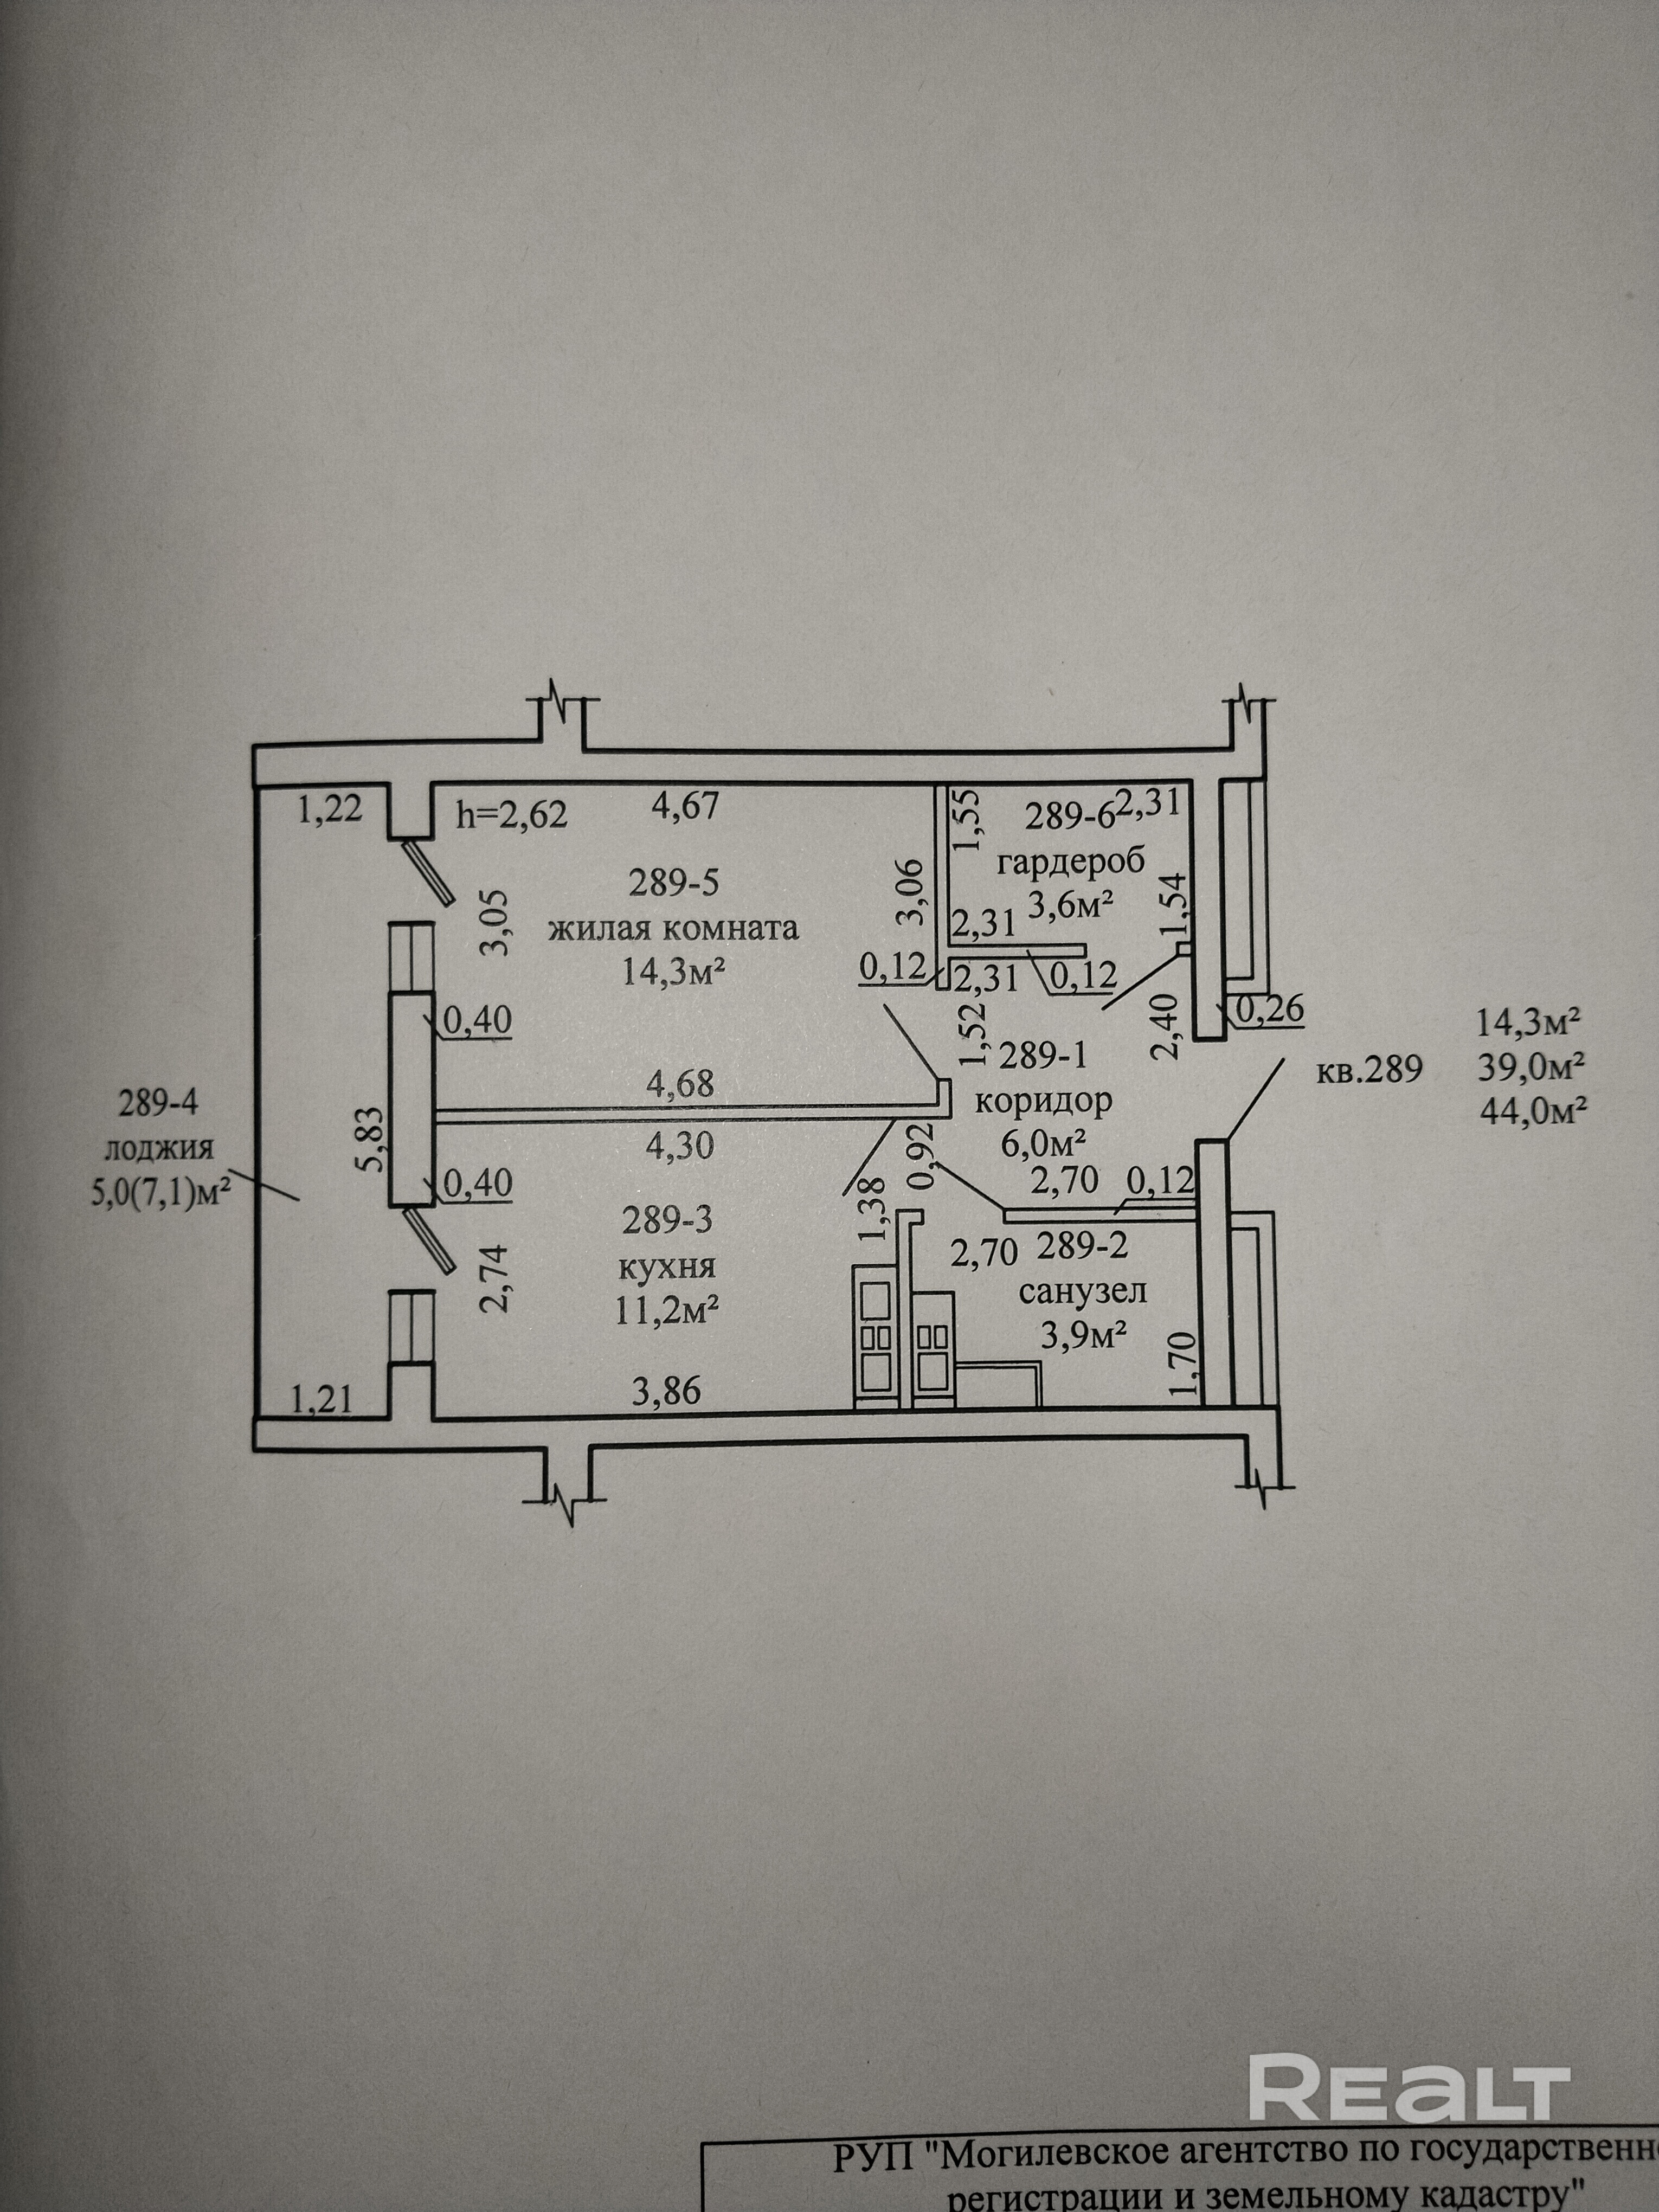 1,22
h=2,62
4,67
1,55
289-6
2,31
гардероб
3,6м²
3,06
1,54
289-5
жилая комната
14,3м²
3,05
2,31
0,12
2,31
0,12
0,40
1,52
2,40
0,26
289-1
коридор
6,0м²
14,3м²
кв.289
39,0м²
44,0м²
4,68
289-4
лоджия
5,0(7,1)м²
5,83
4,30
0,92
0,40
2,70
0,12
1,38
289-3
кухня
11,2м²
2,70
289-2
санузел
3,9м²
2,74
1,70
1,21
3,86
REALT
РУП "Могилевское агентство по государственн
регистрации и земельному кадастру"